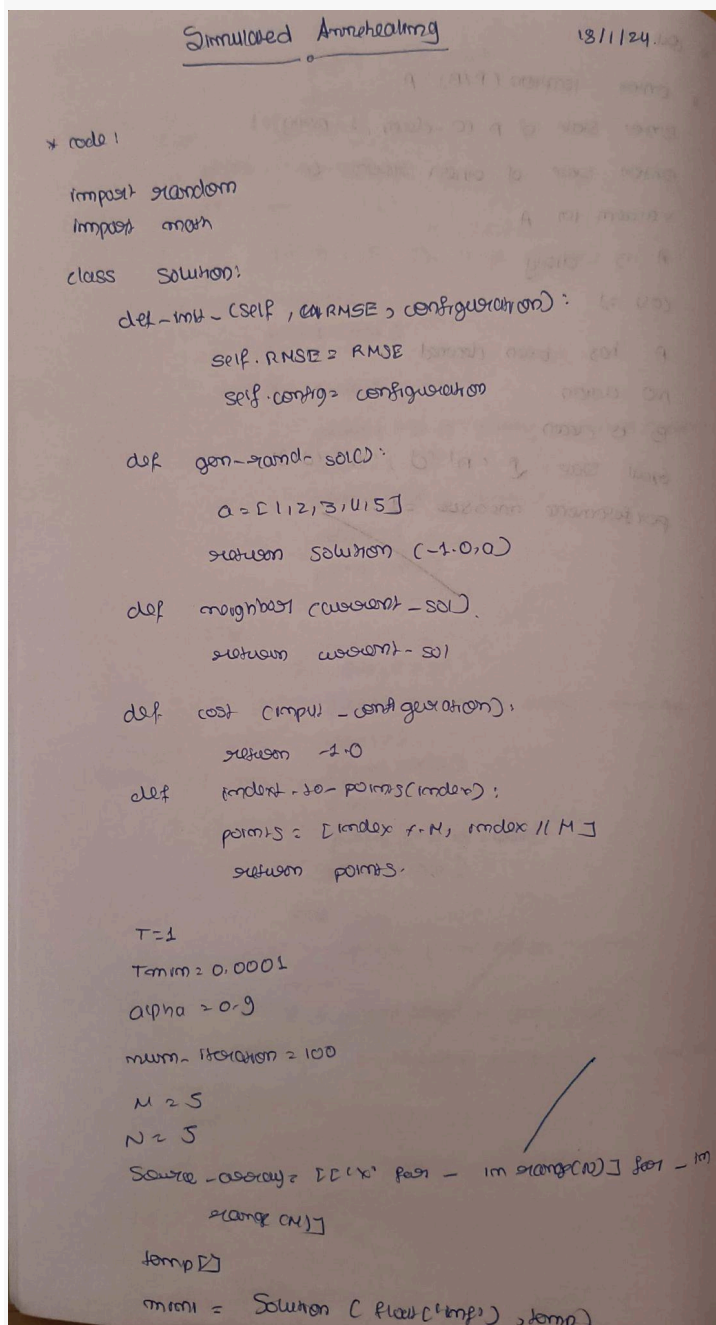 Simulated Annehealing 18/1/24.
* code:
import random
import math
class Solution:
def-init-(self, RMSE, configuration):
self.RMSE = RMSE
self.config = configuration
def gen-rand-sol():
a = [1,2,3,4,5]
return solution (-1.0,a)
def neighbor (current-sol).
return current-sol
def cost (input-configuration):
return -1.0
def indext-to-points(index):
points = [index %M, index // M]
return points.
T=1
Tmin = 0.0001
alpha = 0.9
num-iteration = 100
M = 5
N = 5
Source-array = [['x' for - in range(N)] for - in
range (M)]
temp []
mini = Solution ( float('inf'), temp)